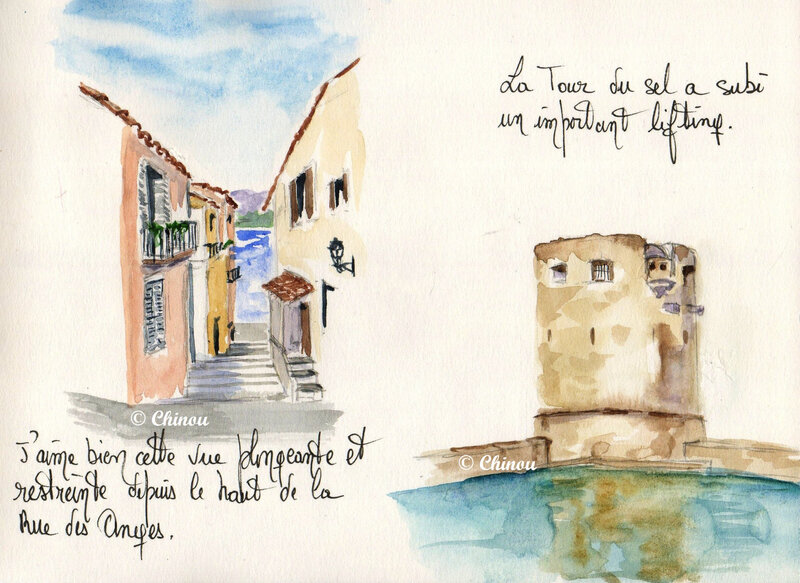 La Tour du sel a subi
un important lifting.
© Chinou
J'aime bien cette vue plongeante et
restreinte depuis le haut de la
Rue des Anges.
© Chinou